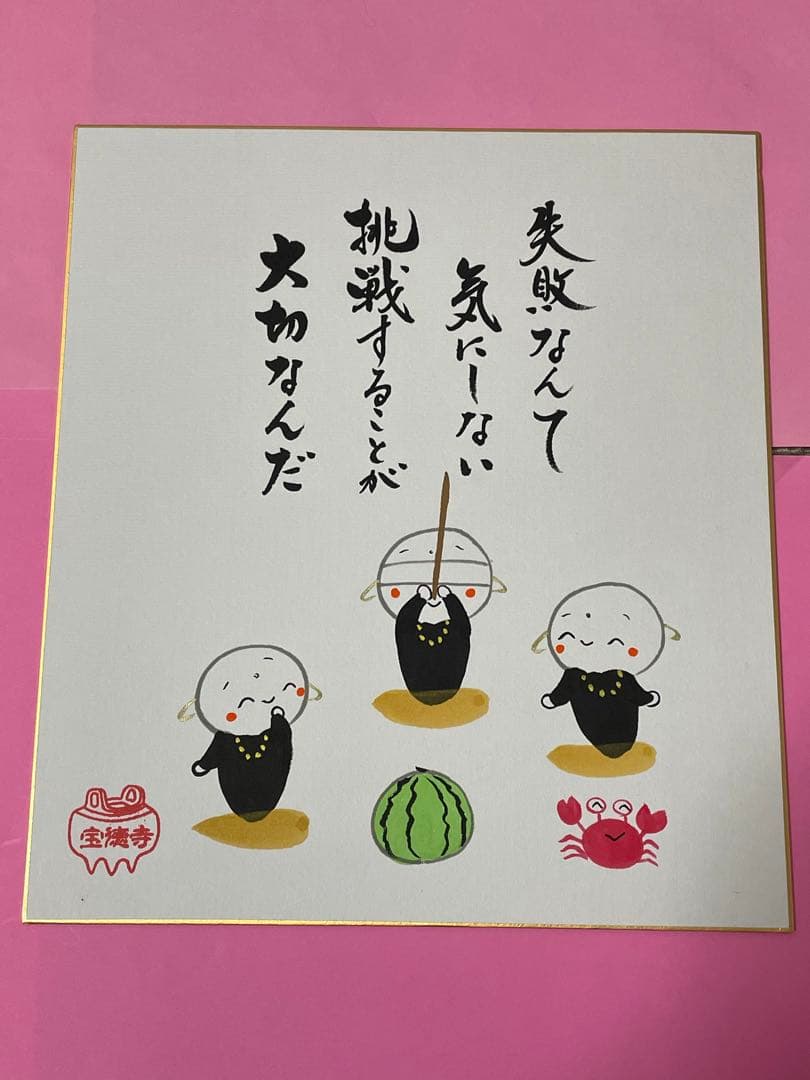 失敗なんて
気にしない
挑戦することが
大切なんだ
宝徳寺